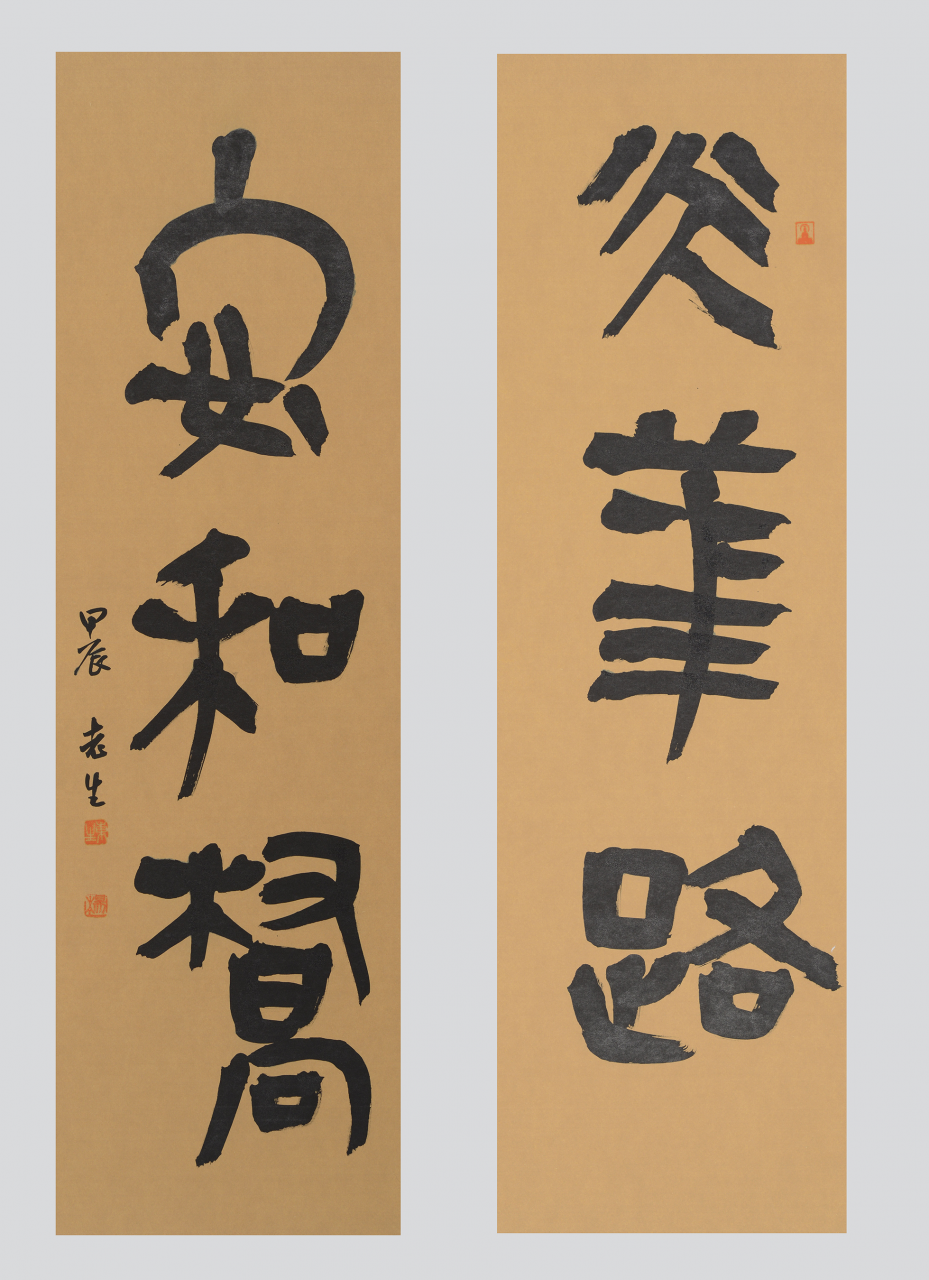 華路
安和橋
甲辰 老生